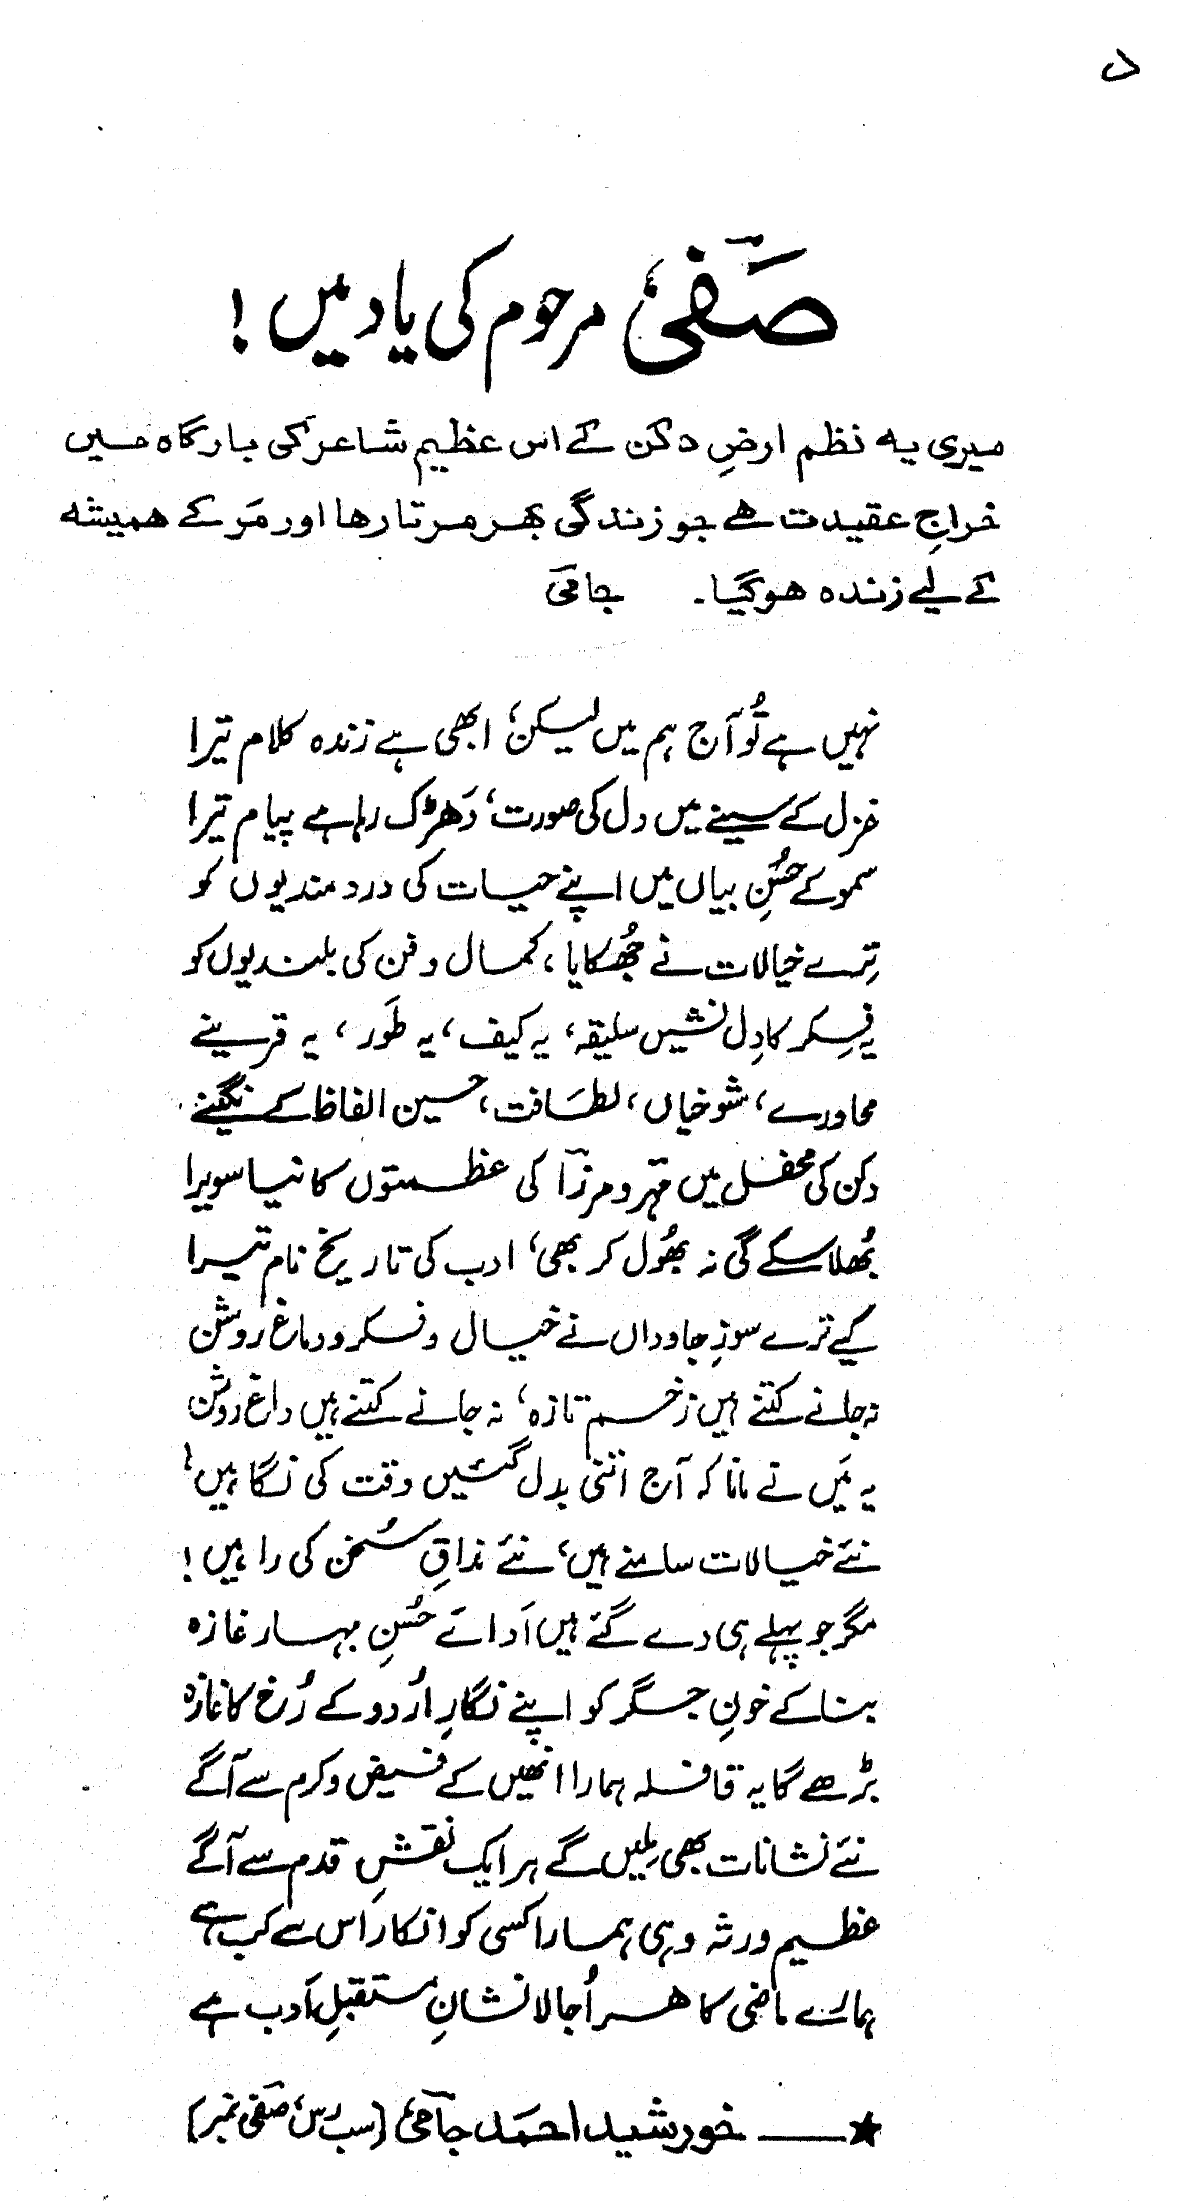 د
صفیؔ مرحوم کی یاد میں !
میری یہ نظم ارضِ دکن کے اس عظیم شاعر کی بارگاہ میں
خراجِ عقیدت ہے جو زندگی بھر مرتا رہا اور مَر کے ہمیشہ
کے لیے زندہ ہوگیا۔ جامیؔ
نہیں ہے تُو آج ہم میں لیکن، ابھی ہے زندہ کلام تیرا
غزل کے سینے میں دل کی صورت، دَھڑک رہا ہے پیام تیرا
سمو کے حُسنِ بیاں میں اپنے حیات کی درد مندیوں کو
تِرے خیالات نے جُھکایا، کمال و فن کی بلندیوں کو
یہ فِکر کا دِل نشیں سلیقہ، یہ کیف، یہ طَور، یہ قرینے
محاورے، شوخیاں، لطافت، حسین الفاظ کے نگینے
دکن کی محفل میں مہرؔ و مرزاؔ کی عظمتوں کا نیا سویرا
بُھلا سکے گی نہ بُھول کر بھی، ادب کی تاریخ نام تیرا
کیے ترے سوزِ جاوداں نے خیال و فکر و دماغ روشن
نہ جانے کتنے ہیں زخم تازہ، نہ جانے کتنے ہیں داغ روشن
یہ مَیں نے مانا کہ آج اتنی بدل گئیں وقت کی نگاہیں،
نئے خیالات سامنے ہیں، نئے مذاقِ سُخن کی راہیں !
مگر جو پہلے ہی دے گئے ہیں اَدائے حُسنِ بہار غازہ
بنا کے خونِ جگر کو اپنے نگارِ اُردو کے رُخ کا غازہ
بڑھے گا یہ قافلہ ہمارا انھیں کے فیض و کرم سے آگے
نئے نشانات بھی مِلیں گے ہر ایک نقشِ قدم سے آگے
عظیم ورثہ وہی ہمارا کسی کو انکار اس سے کب ہے
ہمارے ماضی کا ہر اُجالا نشانِ مستقبلِ اَدب ہے
★ —— خورشید احمد جامیؔ (سب رس، صفی نمبر)